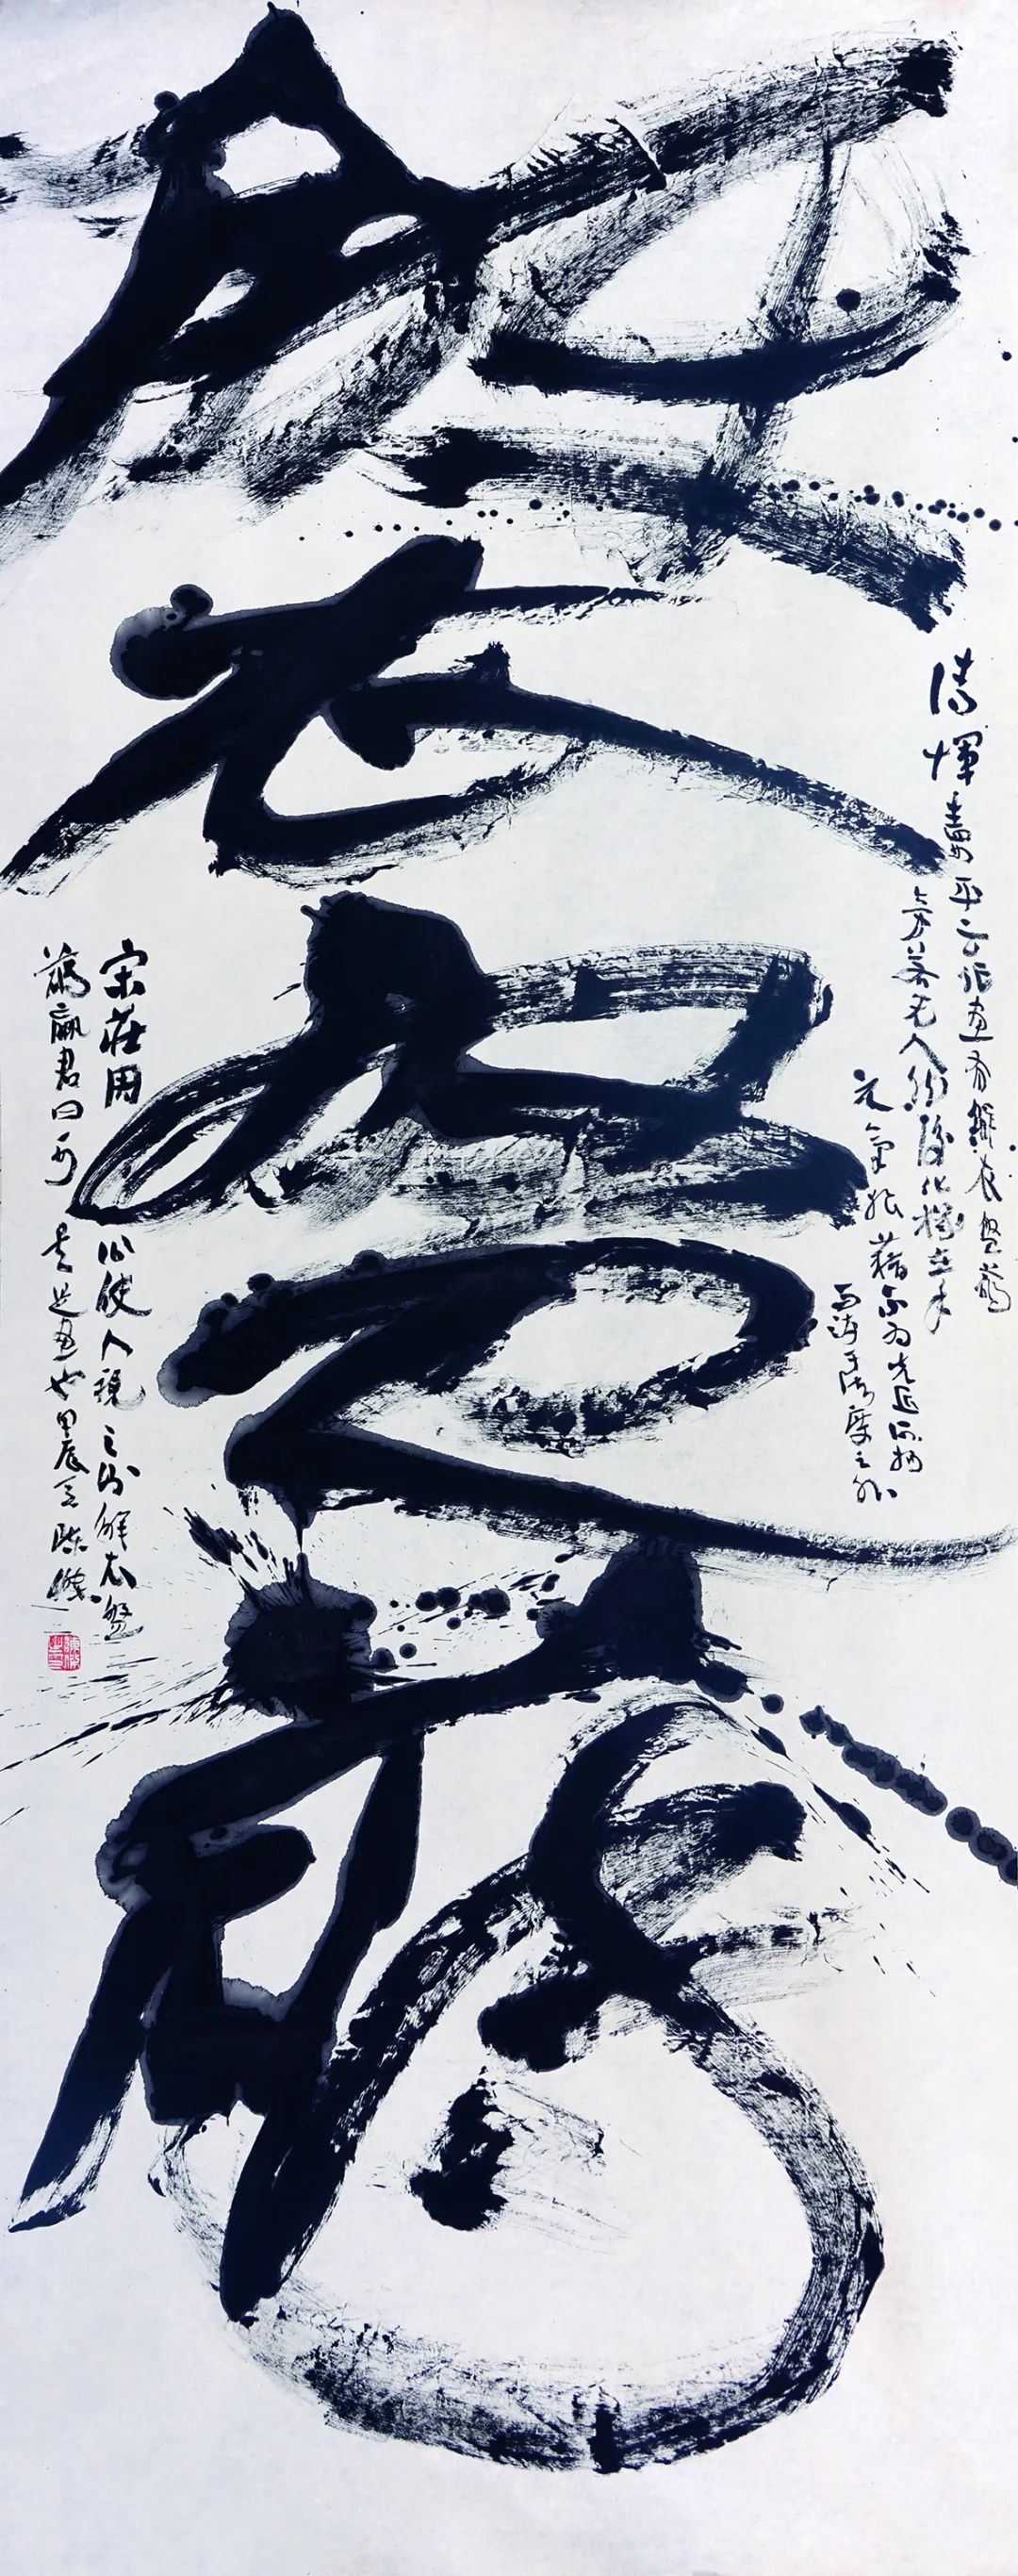 解衣盤礴
清惲壽平云作畫有解衣盤礴
旁若无人然後化機在手
元氣狼藉不為先匠所拘
而游于法度之外
宋莊周公使人視之則解衣盤
礴臝君曰可矣是畫也甲辰